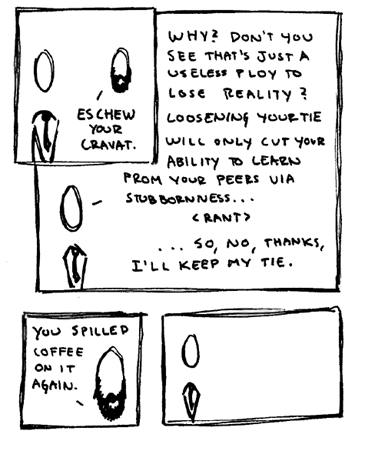 ESCHEW
YOUR
CRAVAT.
WHY? DON'T YOU
SEE THAT'S JUST A
USELESS PLOY TO
LOSE REALITY?
LOOSENING YOUR TIE
WILL ONLY CUT YOUR
ABILITY TO LEARN
FROM YOUR PEERS VIA
STUBBORNNESS...
<RANT>
... SO, NO, THANKS,
I'LL KEEP MY TIE.
YOU SPILLED
COFFEE
ON IT
AGAIN.